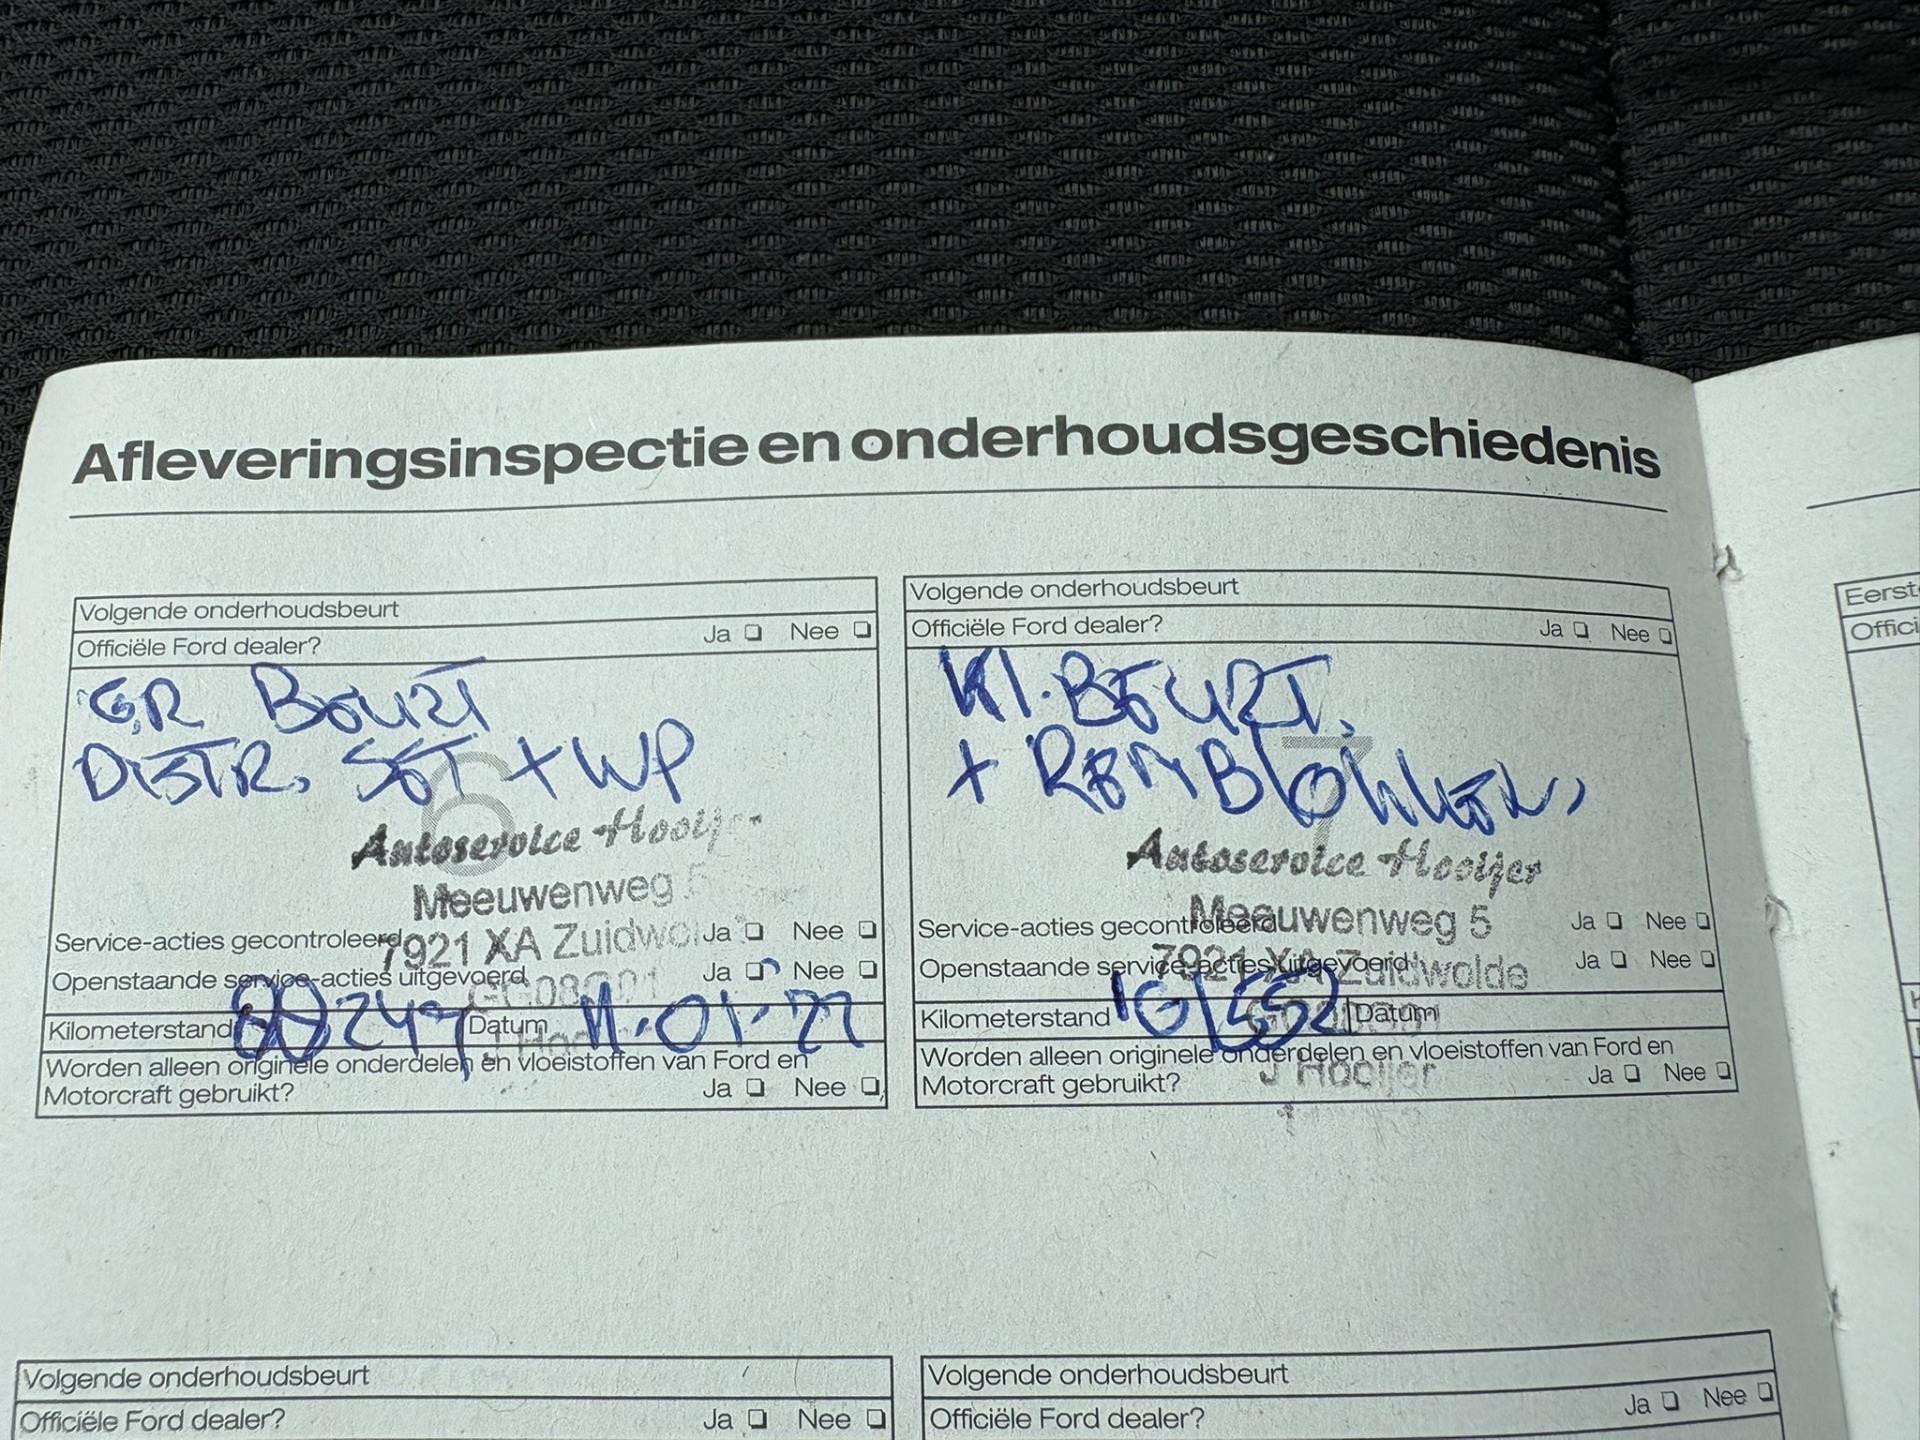 Afleveringsinspectie en onderhoudsgeschiedenis
Volgende onderhoudsbeurt
Officiële Ford dealer? Ja Nee
GR BEURT
DISTR. SET + WP
6
Autoservice Hooijer
Meeuwenweg 5
7921 XA Zuidwol
Service-acties gecontroleerd Ja Nee
Openstaande service-acties uitgevoerd Ja Nee
Kilometerstand Datum 11-01-22
Worden alleen originele onderdelen en vloeistoffen van Ford en
Motorcraft gebruikt? Ja Nee
Volgende onderhoudsbeurt
Officiële Ford dealer? Ja Nee
Kl. BEURT.
+ REMBLOKKEN,
7
Autoservice Hooijer
Meeuwenweg 5
7921 XA Zuidwolde
Service-acties gecontroleerd Ja Nee
Openstaande service-acties uitgevoerd Ja Nee
Kilometerstand Datum
J Hooijer
Worden alleen originele onderdelen en vloeistoffen van Ford en
Motorcraft gebruikt? Ja Nee
Volgende onderhoudsbeurt
Officiële Ford dealer? Ja Nee
Volgende onderhoudsbeurt
Officiële Ford dealer? Ja Nee
Eerst
Offici